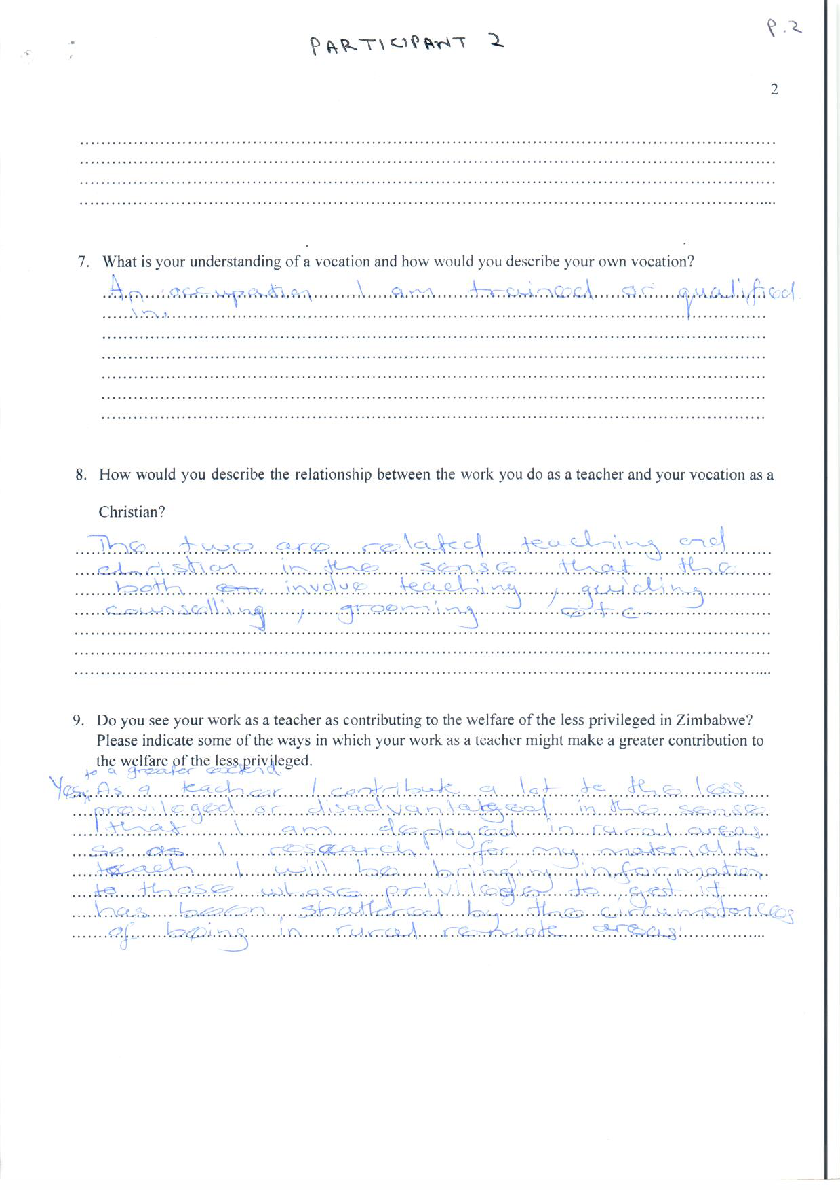 P.2
PARTICIPANT 2
2
7. What is your understanding of a vocation and how would you describe your own vocation?
An occupation I am trained or qualified
in.
8. How would you describe the relationship between the work you do as a teacher and your vocation as a
Christian?
The two are related teaching and
christian in the sense that the
both involve teaching, guiding
counselling, grooming etc
9. Do you see your work as a teacher as contributing to the welfare of the less privileged in Zimbabwe?
Please indicate some of the ways in which your work as a teacher might make a greater contribution to
the welfare of the less privileged.
to a greater
Yes, As a teacher I contribute a lot to the less
privileged or disadvantaged in the sense
that I am deployed in rural areas
so as I research for my material to
teach I will be bringing information
to those whose privilege to get it
has been shattered by the circumstances
of being in rural remote areas.